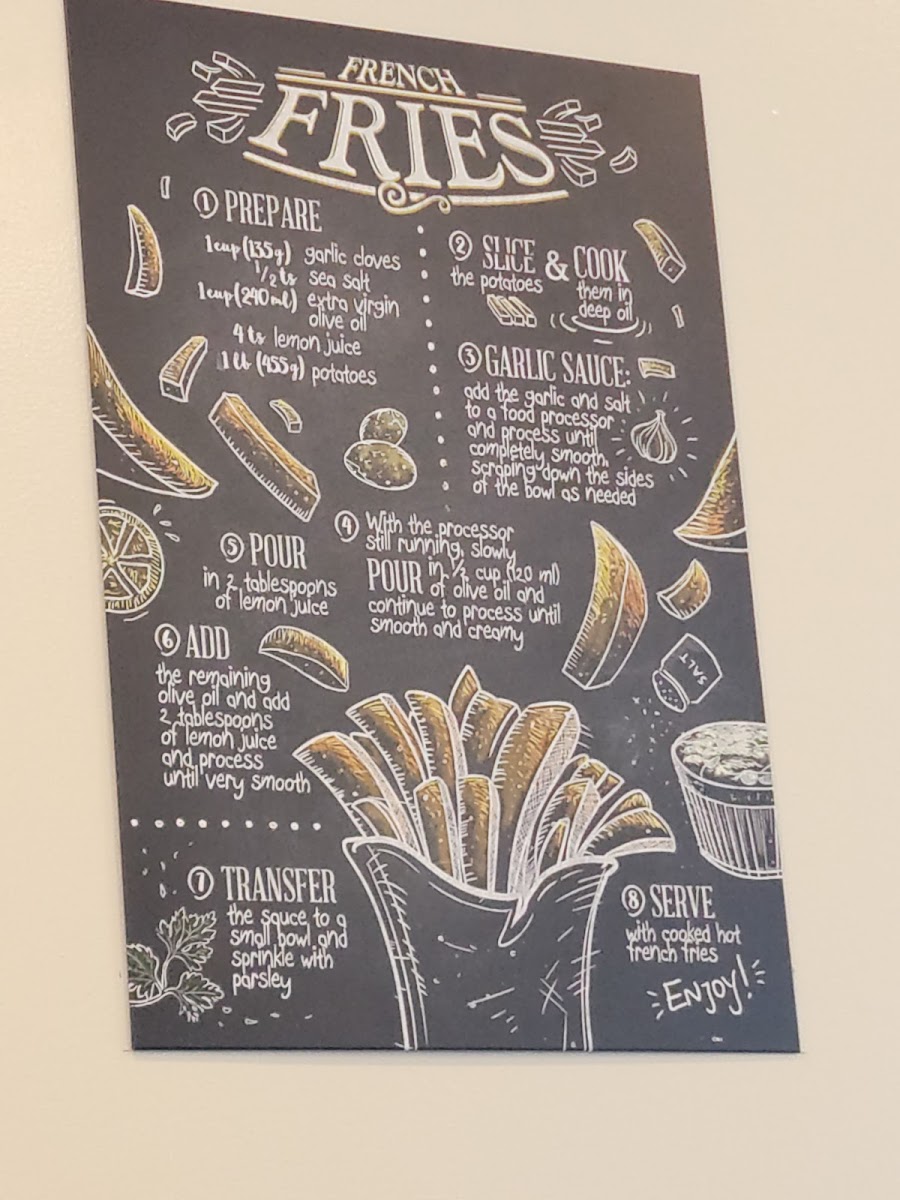 FRENCH
FRIES
1 PREPARE
1 cup (135g) garlic cloves
1/2 ts sea salt
1 cup (240 ml) extra virgin
olive oil
4 ts lemon juice
1 lb (455g) potatoes
2 SLICE & COOK
the potatoes
them in
deep oil
3 GARLIC SAUCE:
add the garlic and salt
to a food processor
and process until
completely smooth,
scraping down the sides
of the bowl as needed
4 With the processor
still running, slowly
POUR in 1/2 cup (120 ml)
of olive oil and
continue to process until
smooth and creamy
5 POUR
in 2 tablespoons
of lemon juice
6 ADD
the remaining
olive oil and add
2 tablespoons
of lemon juice
and process
until very smooth
SALT
7 TRANSFER
the sauce to a
small bowl and
sprinkle with
parsley
8 SERVE
with cooked hot
french fries
ENJOY!